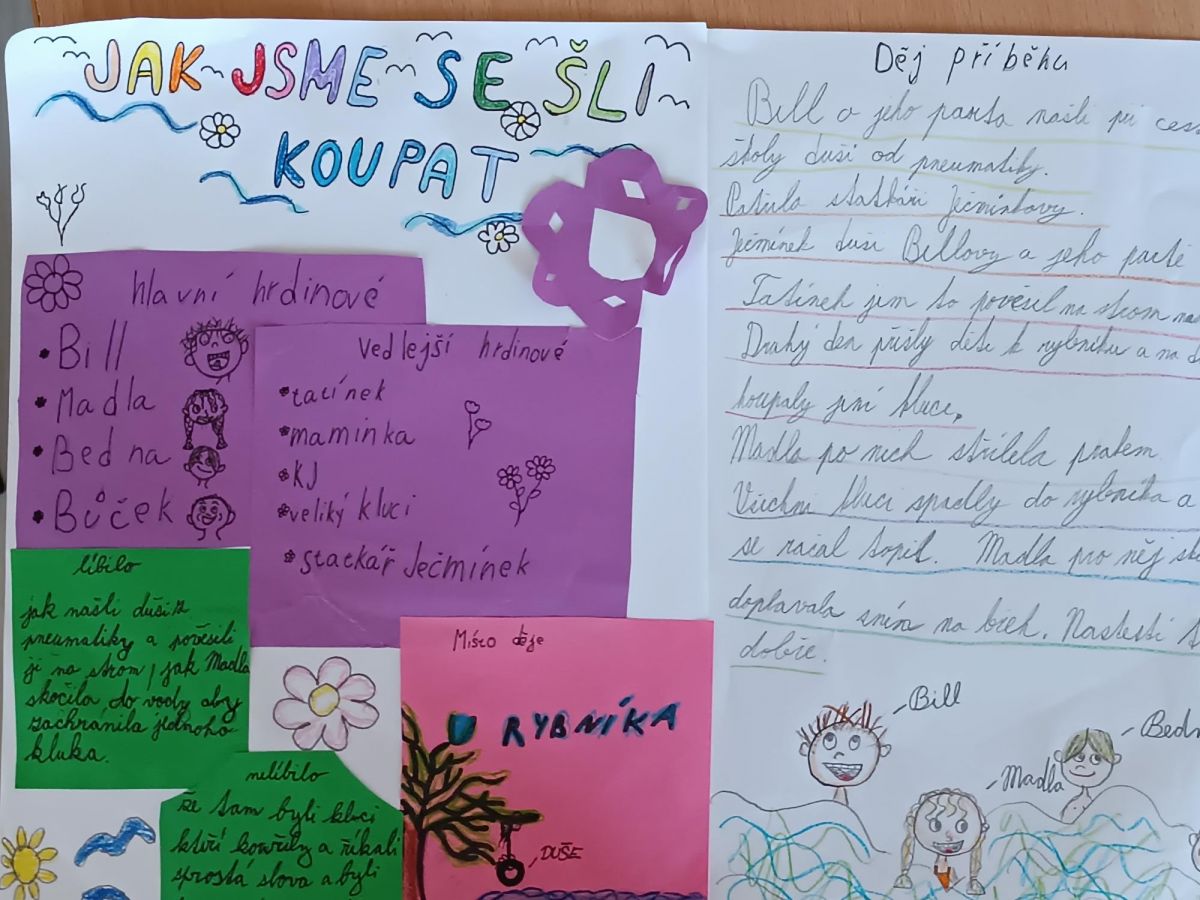 JAK JSME SE ŠLI
KOUPAT
hlavní hrdinové
• Bill
• Madla
• Bedna
• Bůček
Vedlejší hrdinové
tatínek
maminka
KJ
veliký kluci
statkář Ječmínek
líbilo
jak našli duši z
pneumatiky a pověsili
ji na strom, jak Madla
skočila do vody aby
zachranila jednoho
kluka.
nelíbilo
že tam byli kluci
kteří kouřily a říkali
sprostá slova a byli
Místo děje
U RYBNÍKA
DUŠE
Děj příběhu
Bill a jeho parta našli při
školy duši od pneumatiky.
Patřila statkáři Ječmínkovy.
Ječmínek duši Billovy a jeho partě
Tatínek jim to pověsil na strom
Druhý den přišly děti k rybníku a na
koupaly jiní kluci.
Madla po nich střílela prakem.
Všichni kluci spadly do rybníka a
se začal topit. Madla pro něj
doplavala sním na břeh. Nastestí
dobře.
Bill
Madla